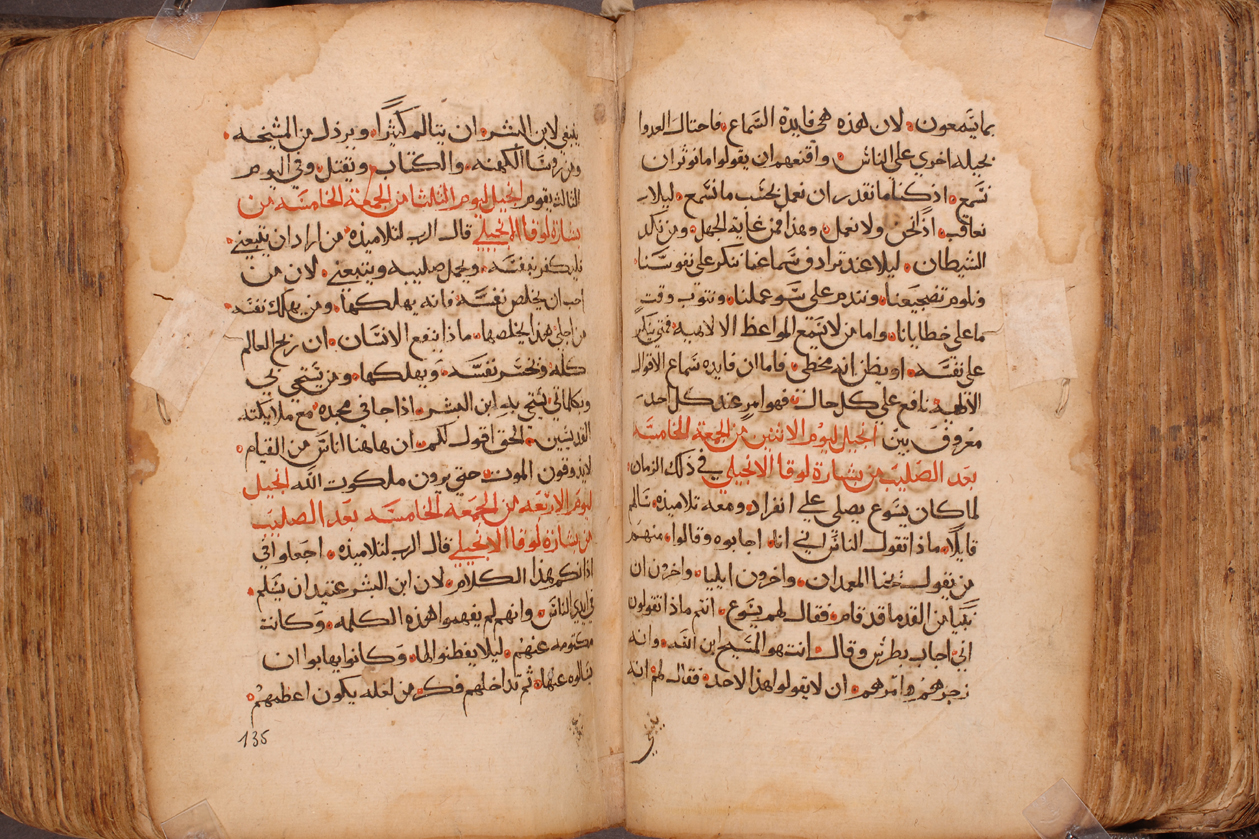 بما يسمعون. لان هذه هي فايدة السماع. فاحتال العدوا
بحيله اخري علي الناس. واقنعهم ان يقولوا ما نوثر ان
نسمع. اذ كنا ما نقدر ان نعمل بحسب ما نسمع. ليلا
نعاقب. اذ نحن ولا نعمل. وهذا فمن غاية الجهل. ومن
الشيطان. ليلا عند ترادف سماعنا ننكر علي نفوسنا
ونلوم تضجيعنا. ونندم علي سو عملنا. ونتوب وقت
ما علي خطايانا. واما من لا يسمع المواعظ الالاهيه. فمتي ينكر
علي نفسه. او يظن انه مخطي. فاما ان فايده سماع الاقوال
الالهيه نافع علي كل حال. فهو امر عند كل احد
معروف بين. انجيل ليوم الاثنين من الجمعة الخامسه
بعد الصليب من بشارة لوقا الانجيلي في ذلك الزمان.
لما كان يسوع يصلي علي انفراد. ومعه تلاميذه. سالهم
قايلا. ماذا تقول الناس في انا. اجابوه وقالوا. منهم
من يقول يوحنا المعمدان. واخرون ايليا. واخرون ان
نبيا من القدما قد قام. فقال لهم يسوع. انتم ماذا تقولون
اني. اجاب بطرس وقال. انت هو المسيح ابن الله. وانه
زجرهم وامرهم. ان لا يقولوا هذا لاحد. فقال لهم انه
ينبغي
ينبغي لابن البشر. ان يتالم كثيرا. ويرذل من المشيخه
ومن روسا الكهنه. والكتاب. ويقتل. وفي اليوم
الثالث يقوم. انجيل ليوم الثلثا من الجمعة الخامسه من
بشارة لوقا الانجيلي قال الرب لتلاميذه. من اراد ان يتبعني.
فليكفر بنفسه. ويحمل صليبه ويتبعني. لان من
احب ان يخلص نفسه فانه يهلكها. ومن يهلك نفسه.
من اجلي هذا يخلصها. ماذا ينفع الانسان. ان ربح العالم
كله. وخسر نفسه. ويهلكها. ومن يستحي بي
وبكلماتي يستحي به ابن البشر. اذا جا في مجده. مع ملايكته
القديسين. الحق اقول لكم. ان هاهنا اناس من القيام.
لا يذوقون الموت. حتي يرون ملكوت الله انجيل
ليوم الاربعه من الجمعه الخامسه بعد الصليب
من بشارة لوقا الانجيلي قال الرب لتلاميذه. اجعلوا في
اذانكم هذا الكلام. لان ابن البشر عتيد ان يسلم.
في ايدي الناس. وانهم لم يفهموا هذه الكلمه. وكانت
مكتومه عنهم. ليلا يفطنوا لها. وكانوا يهابوا ان
يسالوه عنها. ثم تداخلهم فكر من لعله يكون اعظمهم.
135